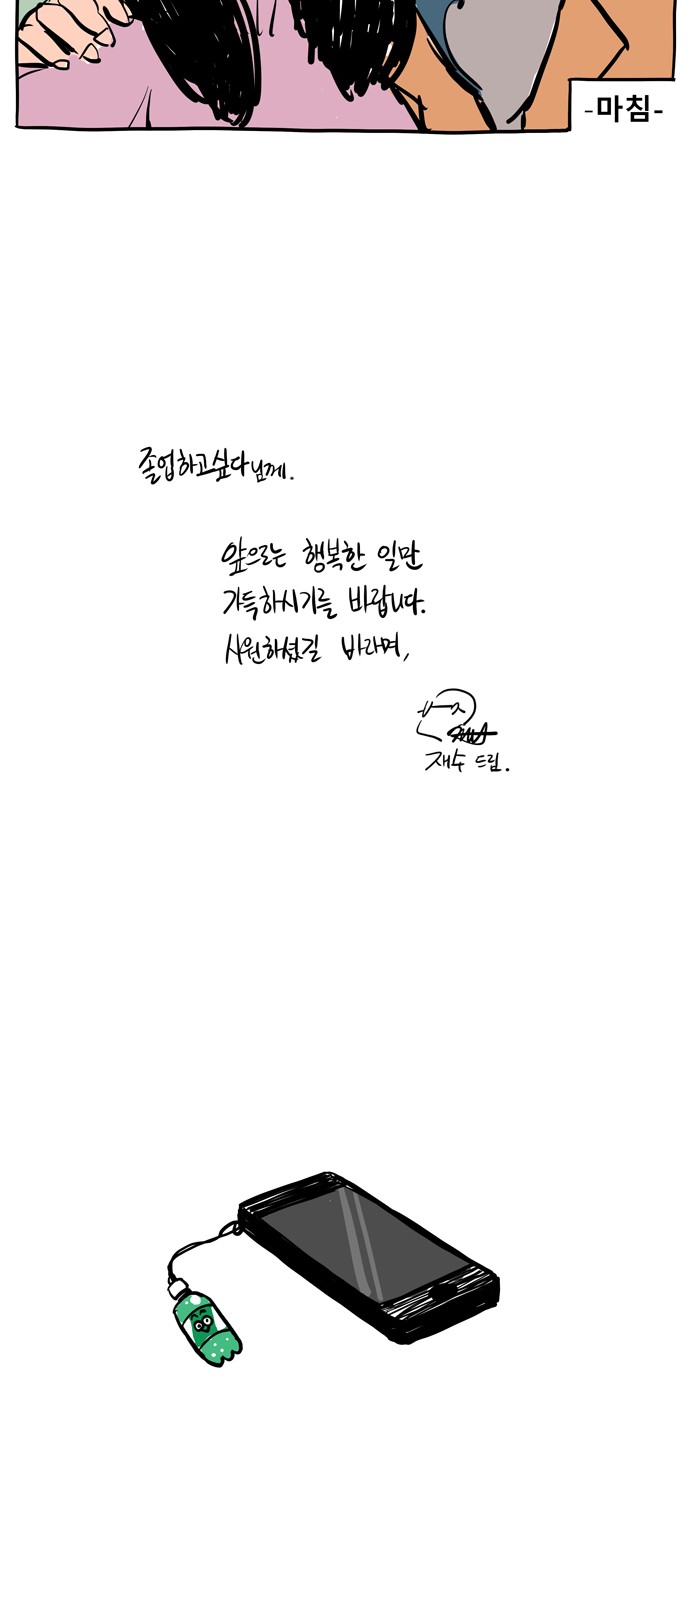 -마침-
졸업하고싶다님께.
앞으로는 행복한 일만
가득하시기를 바랍니다.
시원하셨길 바라며,
재수 드림.